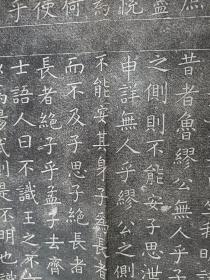 悅
使
乎
昔者魯繆公無人乎子
之側則不能安子思泄
申詳無人乎繆公之側
不能安其身子為長者
而不及子思子絕長者
長者絕子乎孟子去齊
士語人曰不識王之不
以為湯武則是不明也識